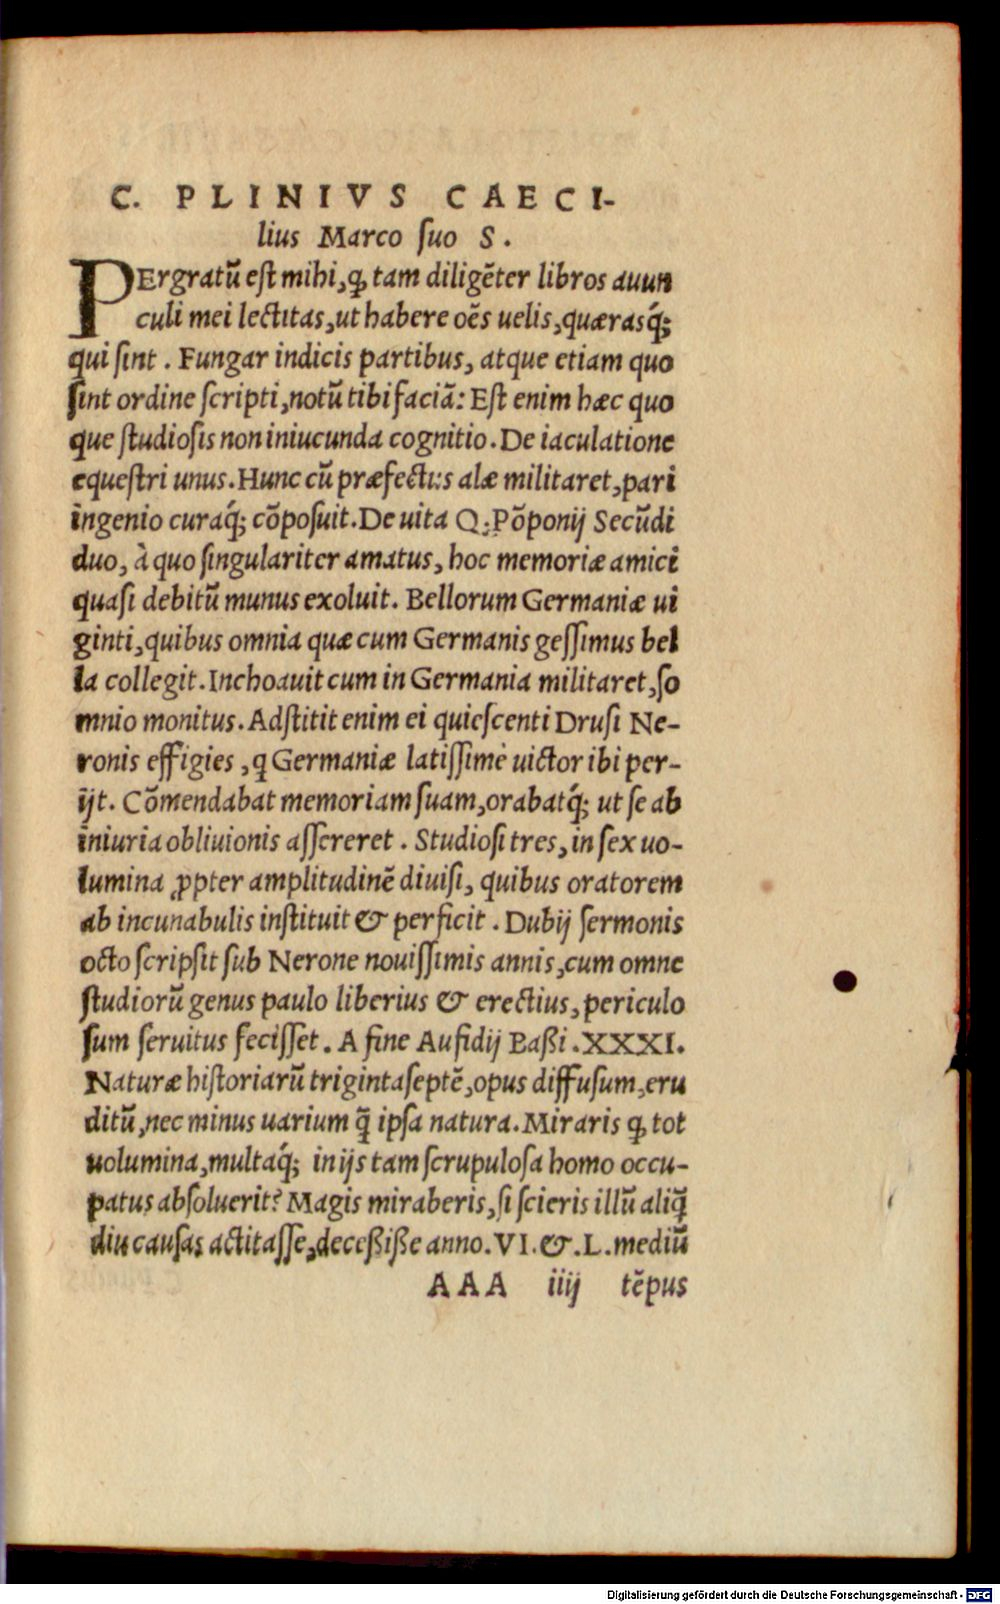 C. PLINIVS CAECI-
lius Marco ſuo S.
PErgratũ eſt mihi, ꝙ tam diligẽter libros auun
culi mei lectitas, ut habere oẽs uelis, quærasq́;
qui ſint. Fungar indicis partibus, atque etiam quo
ſint ordine ſcripti, notũ tibi faciã: Eſt enim hæc quo
que ſtudioſis non iniucunda cognitio. De iaculatione
equeſtri unus. Hunc cũ præfectus alæ militaret, pari
ingenio curaq́; cõpoſuit. De uita Q. Põponij Secũdi
duo, à quo ſingulariter amatus, hoc memoriæ amici
quaſi debitũ munus exoluit. Bellorum Germaniæ ui
ginti, quibus omnia quæ cum Germanis geſſimus bel
la collegit. Inchoauit cum in Germania militaret, ſo
mnio monitus. Adſtitit enim ei quieſcenti Druſi Ne-
ronis effigies, q Germaniæ latiſſimè uictor ibi per-
ijt. Cõmendabat memoriam ſuam, orabatq́; ut ſe ab
iniuria obliuionis aſſereret. Studioſi tres, in ſex uo-
lumina ꝓpter amplitudinẽ diuiſi, quibus oratorem
ab incunabulis inſtituit & perficit. Dubij ſermonis
octo ſcripſit ſub Nerone nouiſſimis annis, cum omne
ſtudiorũ genus paulo liberius & erectius, periculo
ſum ſeruitus feciſſet. A fine Aufidij Baßi. XXXI.
Naturæ hiſtoriarũ trigintaſeptẽ, opus diffuſum, eru
ditũ, nec minus uarium q̃ ipſa natura. Miraris ꝙ tot
uolumina, multaq́; in ijs tam ſcrupuloſa homo occu-
patus abſoluerit? Magis miraberis, ſi ſcieris illũ aliq̃
diu cauſas actitaſſe, deceßiße anno. VI. &. L. mediũ
AAA iiij tẽpus
Digitalisierung gefördert durch die Deutsche Forschungsgemeinschaft - DFG